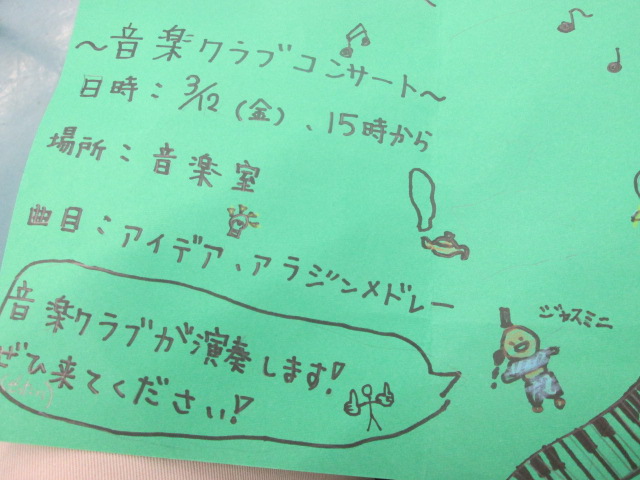 ～音楽クラブコンサート～
日時：3/12（金）、15時から
場所：音楽室
曲目：アイデア、アラジンメドレー
音楽クラブが演奏します!
ぜひ来てください!
ジャスミニ